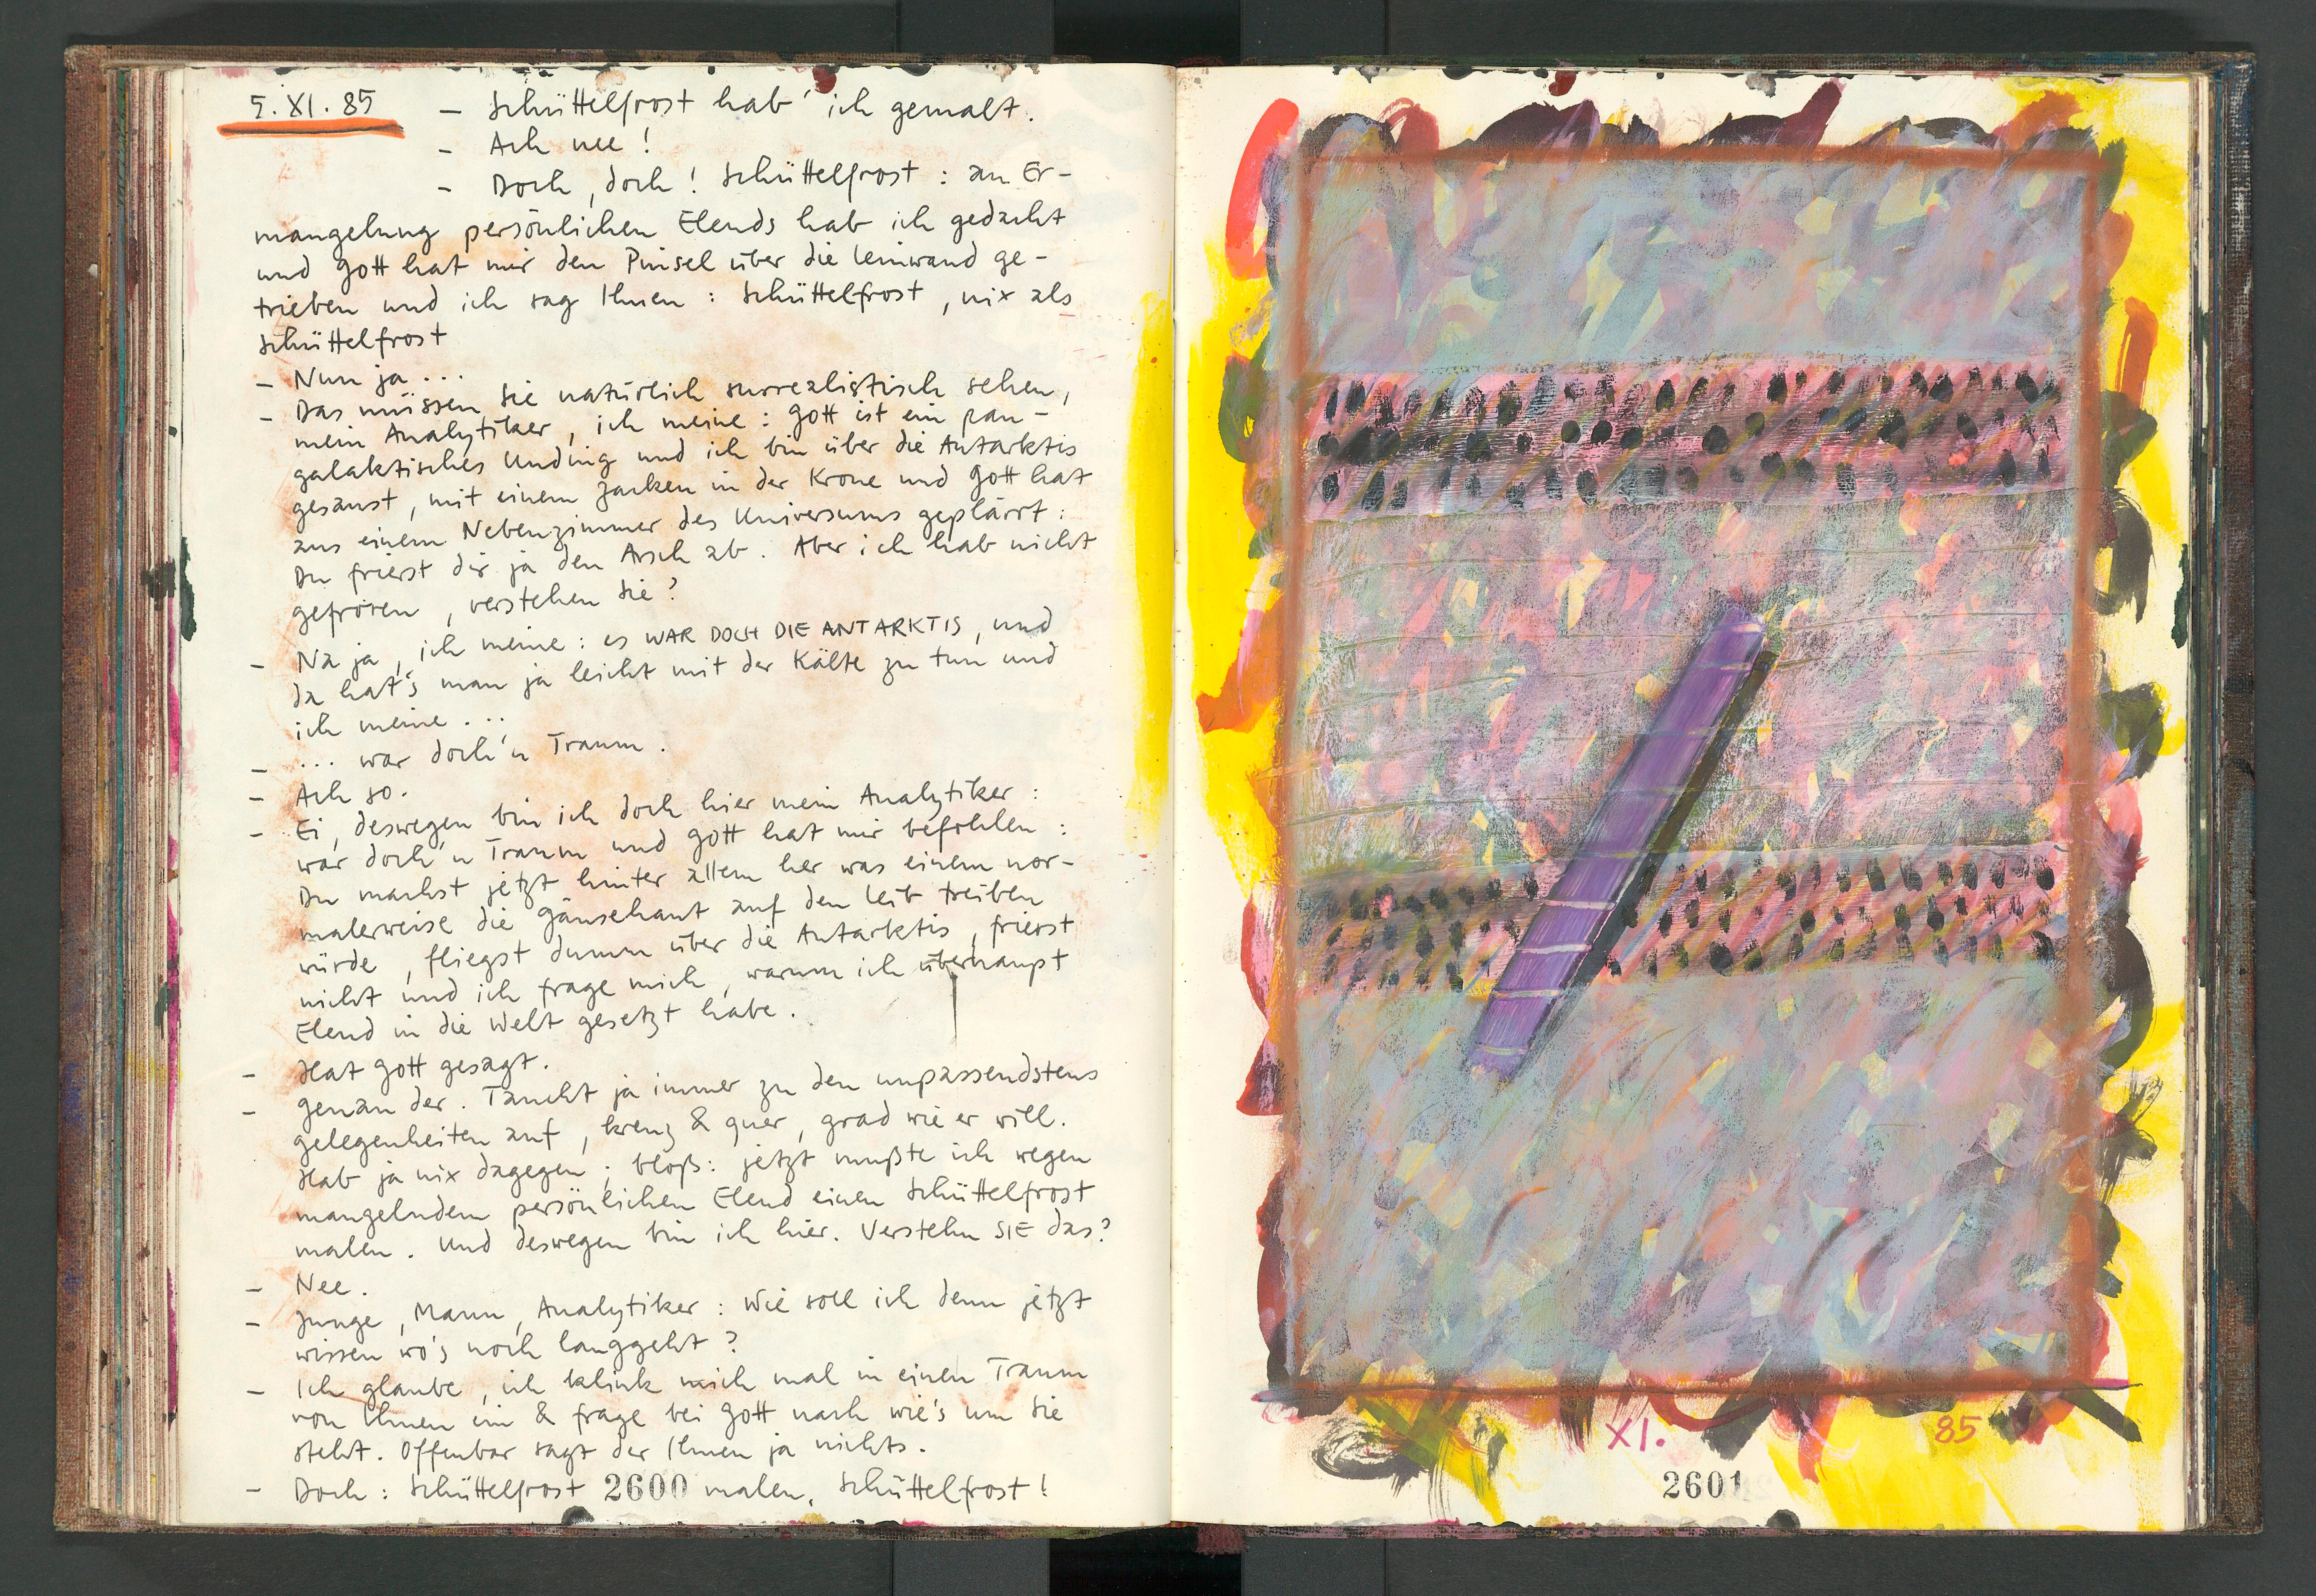 5. XI. 85 – Schüttelfrost hab' ich gemalt.
– Ach nee!
– Doch, doch! Schüttelfrost: an Er-
mangelung persönlichen Elends hab ich gedacht
und Gott hat mir den Pinsel über die Leinwand ge-
trieben und ich sag Ihnen: Schüttelfrost, nix als
Schüttelfrost
– Nun ja...
– Das müssen Sie natürlich surrealistisch sehen,
mein Analytiker, ich meine: Gott ist ein pan-
galaktisches Unding und ich bin über die Antarktis
gesaust, mit einem Zacken in der Krone und Gott hat
aus einem Nebenzimmer des Universums geplärrt:
Du frierst dir ja den Arsch ab. Aber ich hab nicht
gefroren, verstehen Sie?
– Na ja, ich meine: es WAR DOCH DIE ANTARKTIS, und
da hat's man ja leicht mit der Kälte zu tun und
ich meine...
– ... war doch'n Traum.
– Ach so.
– Ei, deswegen bin ich doch hier mein Analytiker:
war doch'n Traum und Gott hat mir befohlen:
Du machst jetzt hinter allem her was einem nor-
malerweise die Gänsehaut auf den Leib treiben
würde, fliegst dumm über die Antarktis, frierst
nicht und ich frage mich, warum ich überhaupt
Elend in die Welt gesetzt habe.
– Hat Gott gesagt.
– Genau der. Taucht ja immer zu den unpassendstens
Gelegenheiten auf, kreuz & quer, grad wie er will.
Hab ja nix dagegen; bloß: jetzt mußte ich wegen
mangelndem persönlichen Elend einen Schüttelfrost
malen. Und deswegen bin ich hier. Verstehn SIE das?
– Nee.
– Junge, Mann, Analytiker: Wie soll ich denn jetzt
wissen wo's noch langgeht?
– Ich glaube, ich klink mich mal in einen Traum
von Ihnen ein & frage bei Gott nach wie's um Sie
steht. Offenbar sagt der Ihnen ja nichts.
– Doch: Schüttelfrost malen, Schüttelfrost!
2600
XI. 85
2601